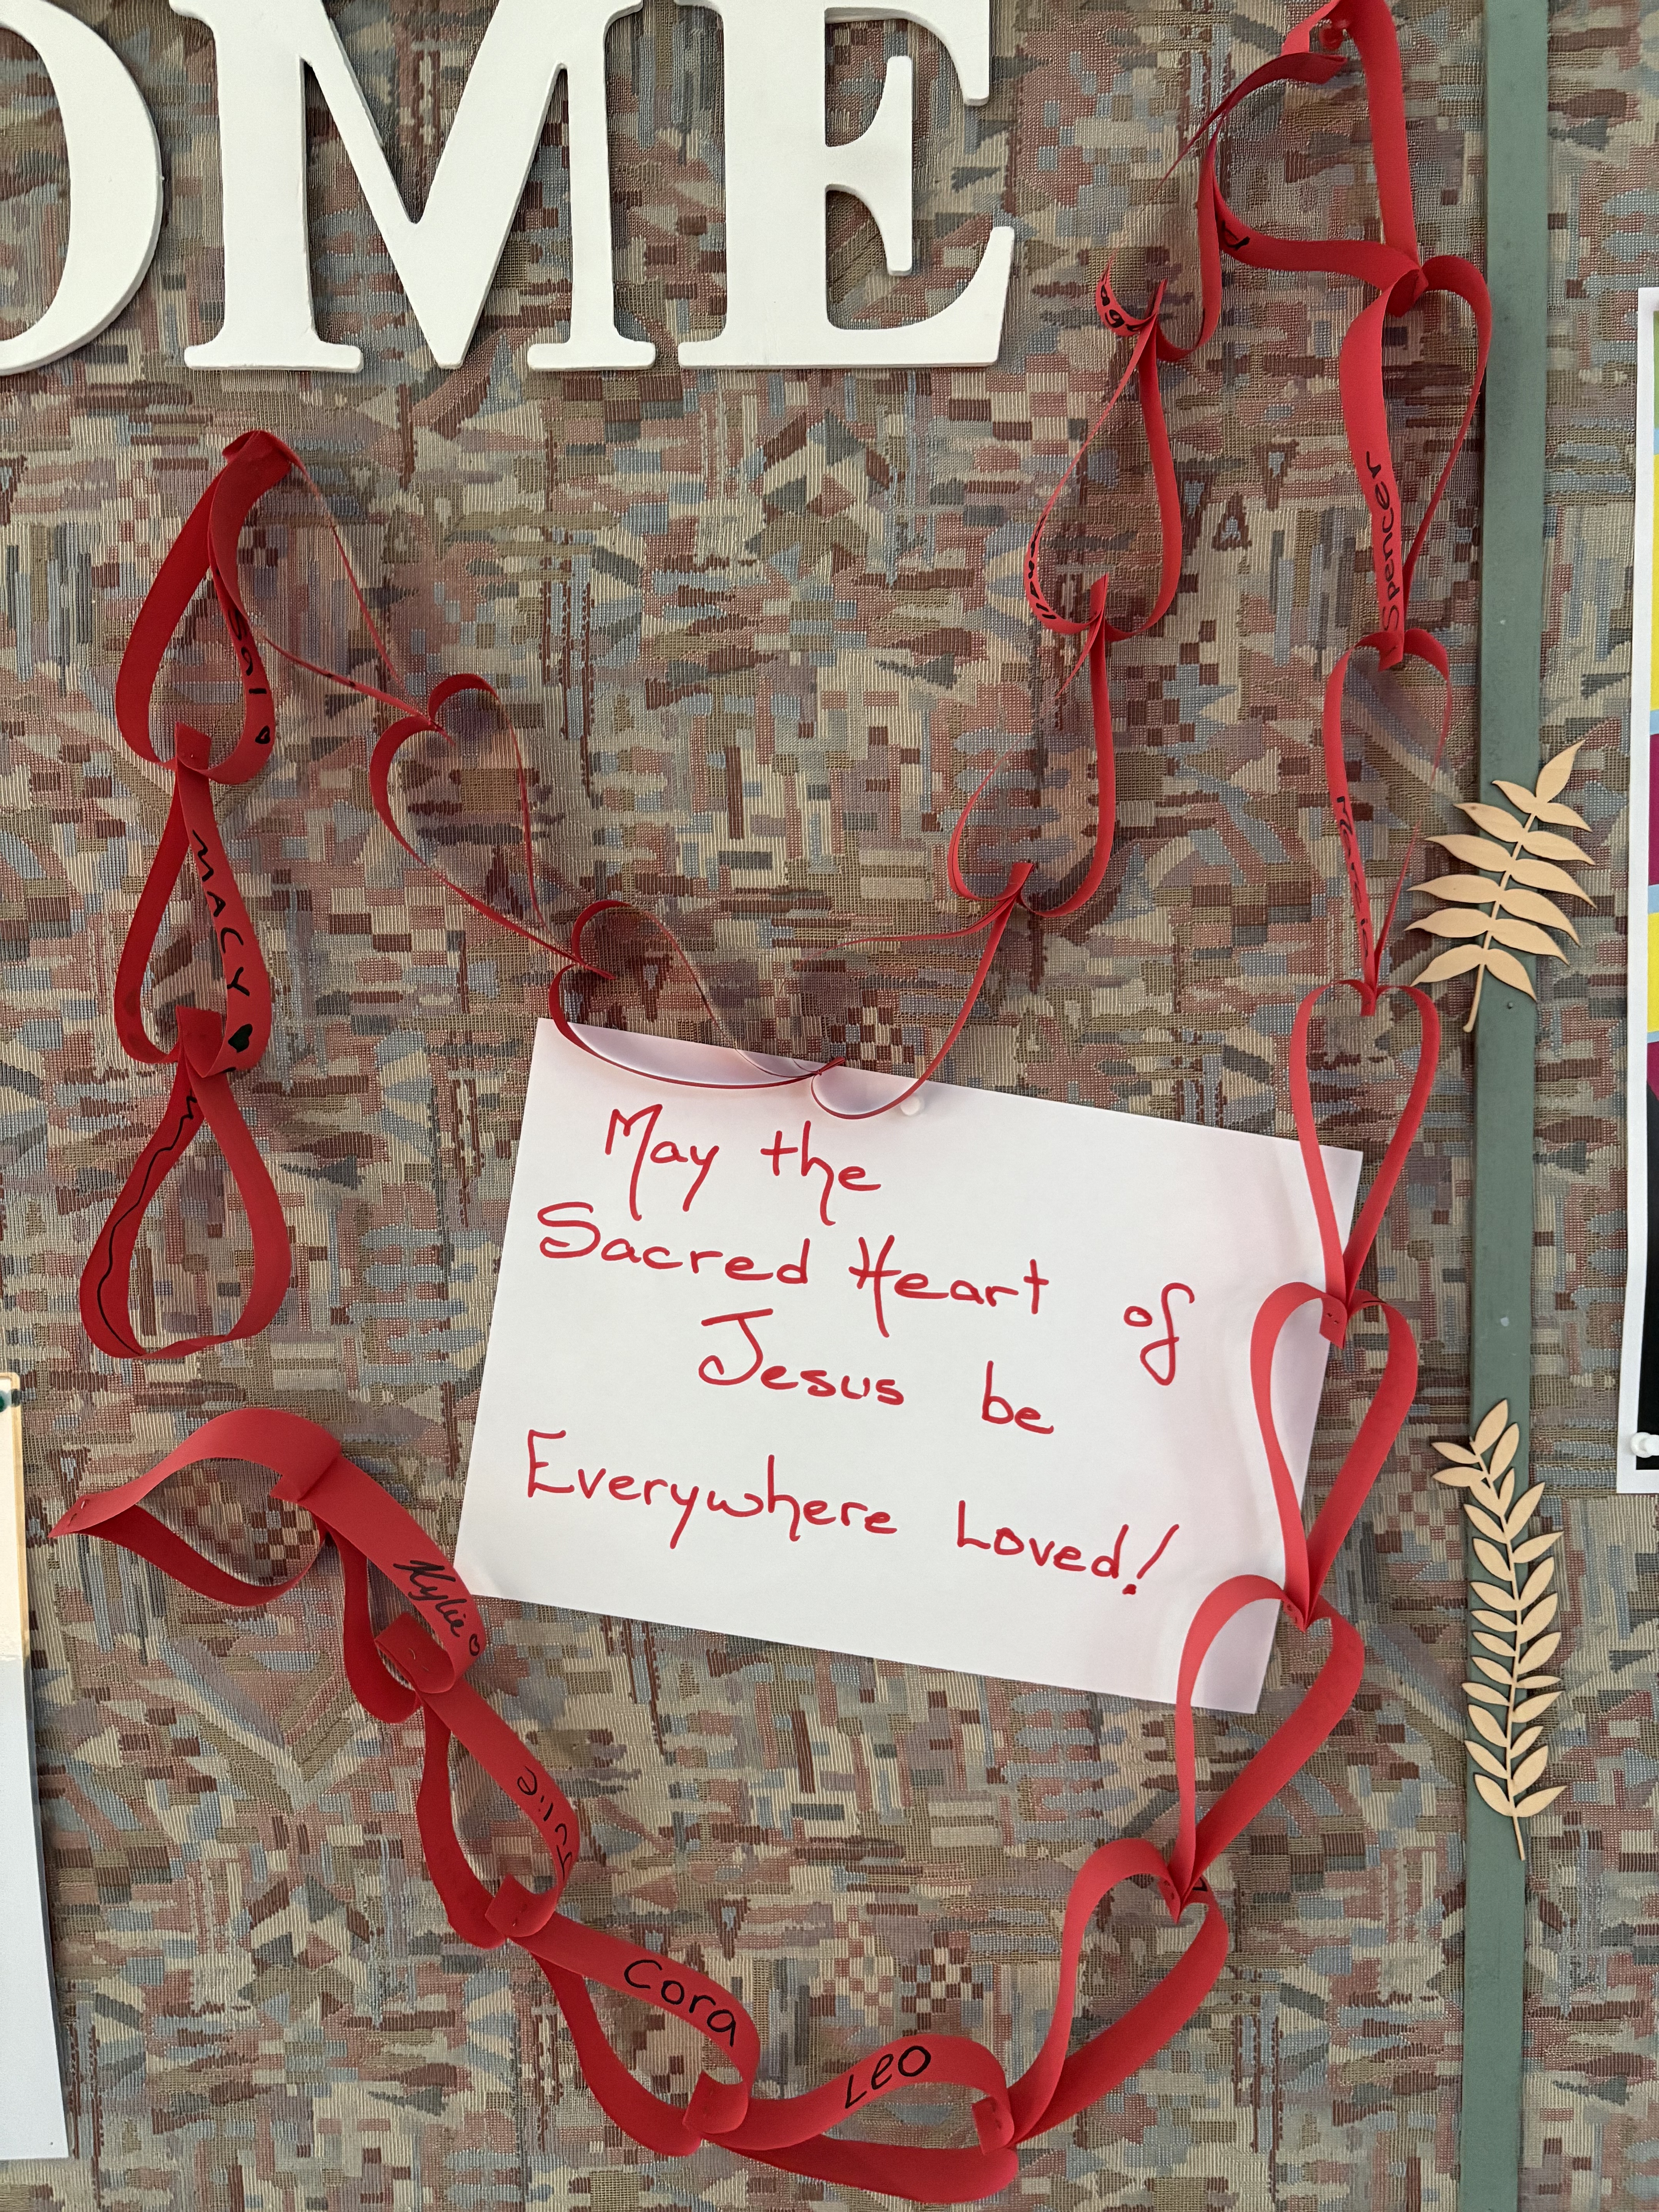 OME
Spencer
Sal
MACY
May the
Sacred Heart of
Jesus be
Everywhere Loved!
Kylie
Julie
Cora
Leo